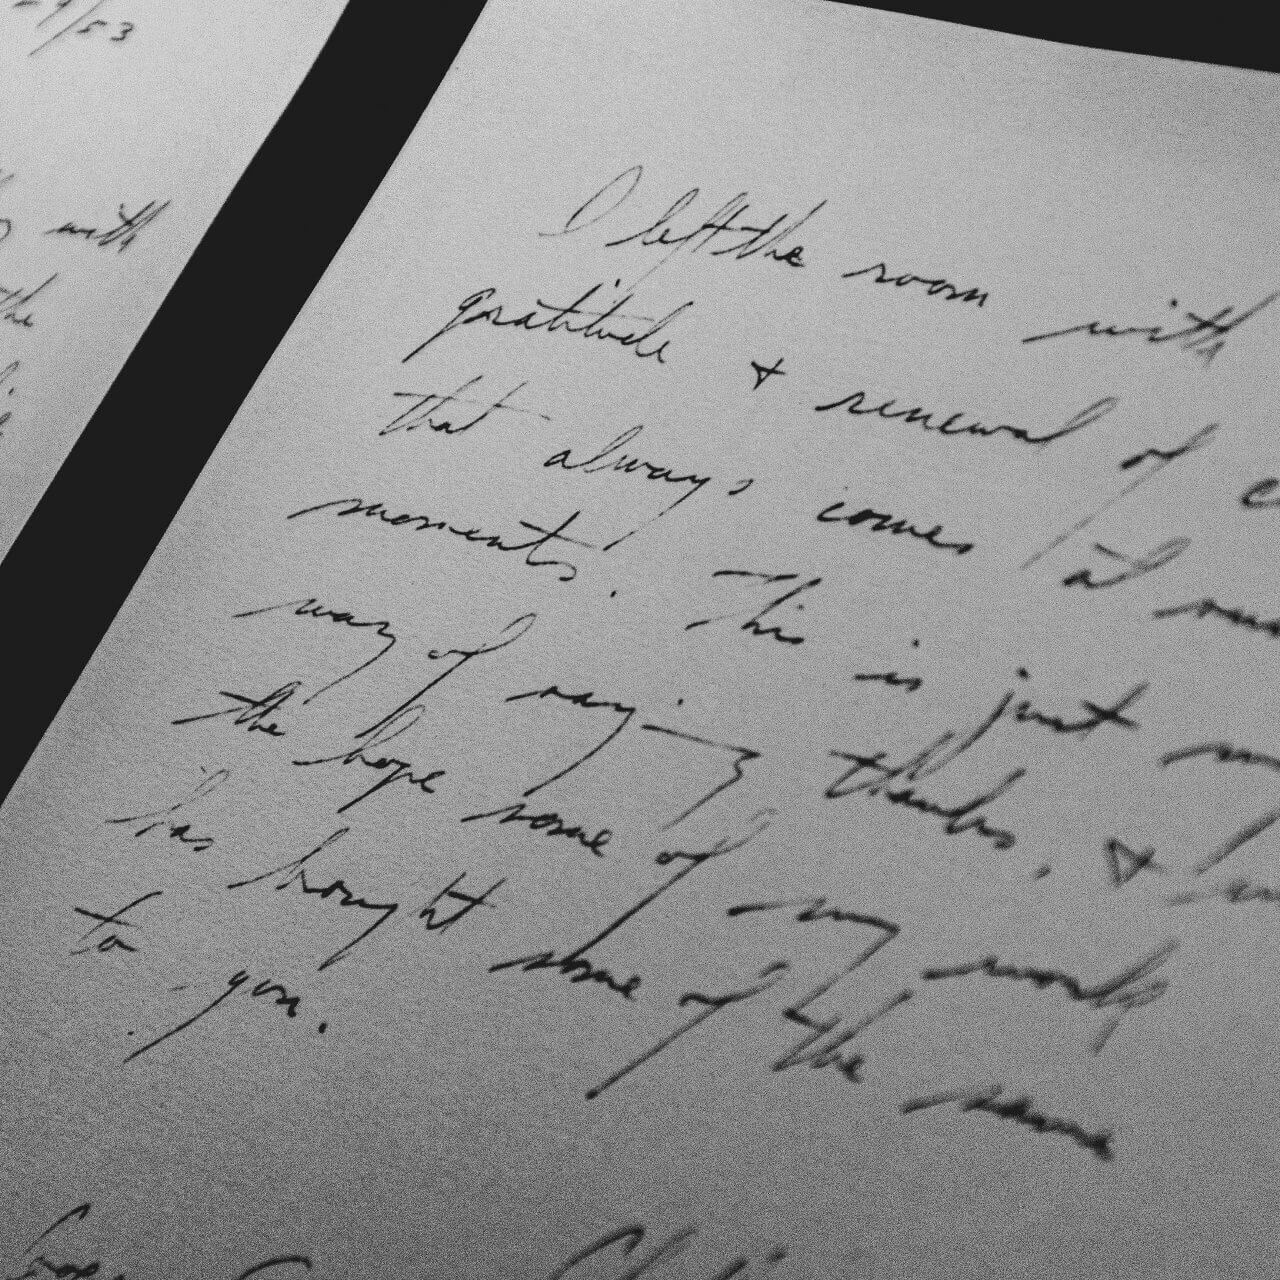 /53
with
the
I left the room with
gratitude & renewal of
that always comes at
moments. This is just
way of saying thanks. &
the hope some of my work
has brought some of the same
to you.